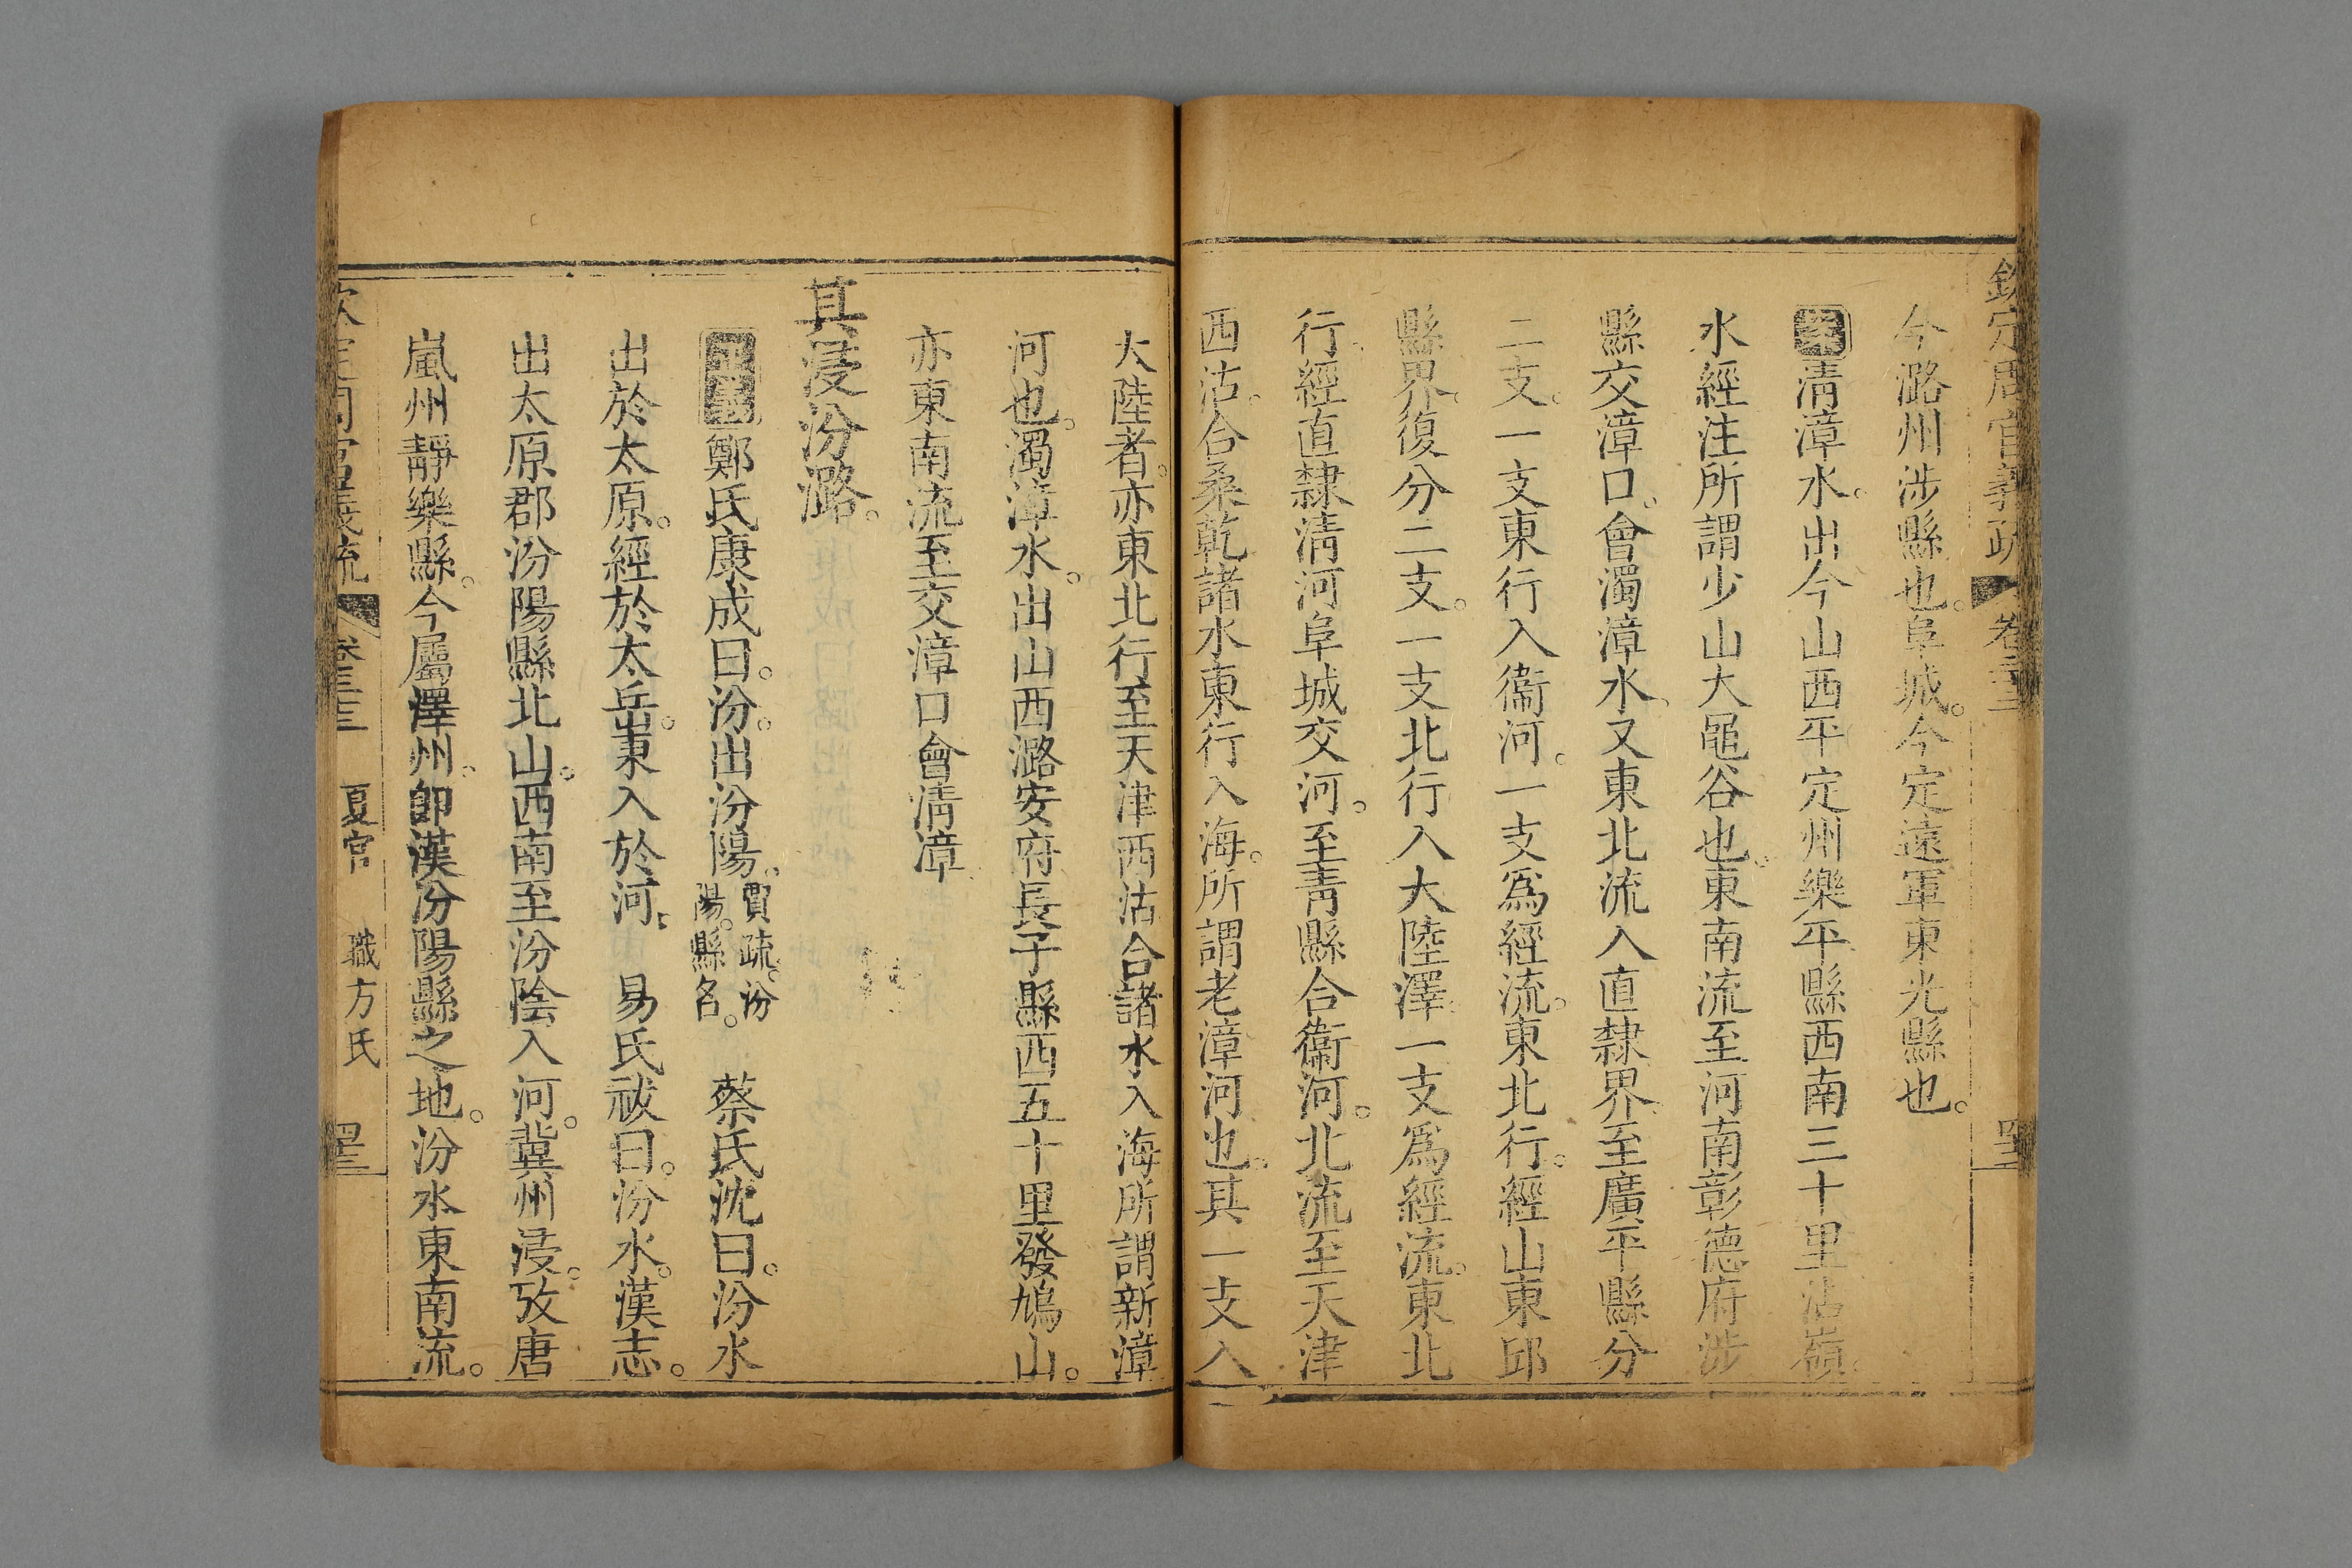 欽定周官義疏 卷三十三
今潞州涉縣也。阜城。今定遠軍東光縣也。
案清漳水。出今山西平定州樂平縣西南三十里沾嶺。
水經注所謂少山大黽谷也。東南流至河南彰德府涉
縣交漳口。會濁漳水。又東北流入直隸界。至廣平縣分
二支。一支東行入衞河。一支爲經流。東北行。經山東邱
縣界。復分二支。一支北行入大陸澤。一支爲經流。東北
行。經直隸清河阜城交河。至青縣合衞河。北流至天津
西沽。合桑乾諸水東行入海。所謂老漳河也。其一支入
大陸者。亦東北行至天津西沽合諸水入海所謂新漳
河也。濁漳水。出山西潞安府長子縣西五十里發鳩山。
亦東南流至交漳口會清漳
其浸汾潞。
鄭氏康成曰。汾。出汾陽。賈疏。汾陽。縣名。 蔡氏沈曰。汾水
出於太原。經於太岳。東入於河。 易氏祓曰。汾水。漢志。
出太原郡汾陽縣北山。西南至汾陰入河。冀州浸。攷唐
嵐州靜樂縣。今屬澤州。卽漢汾陽縣之地。汾水東南流。
欽定周官義疏 卷三十三 夏官 職方氏